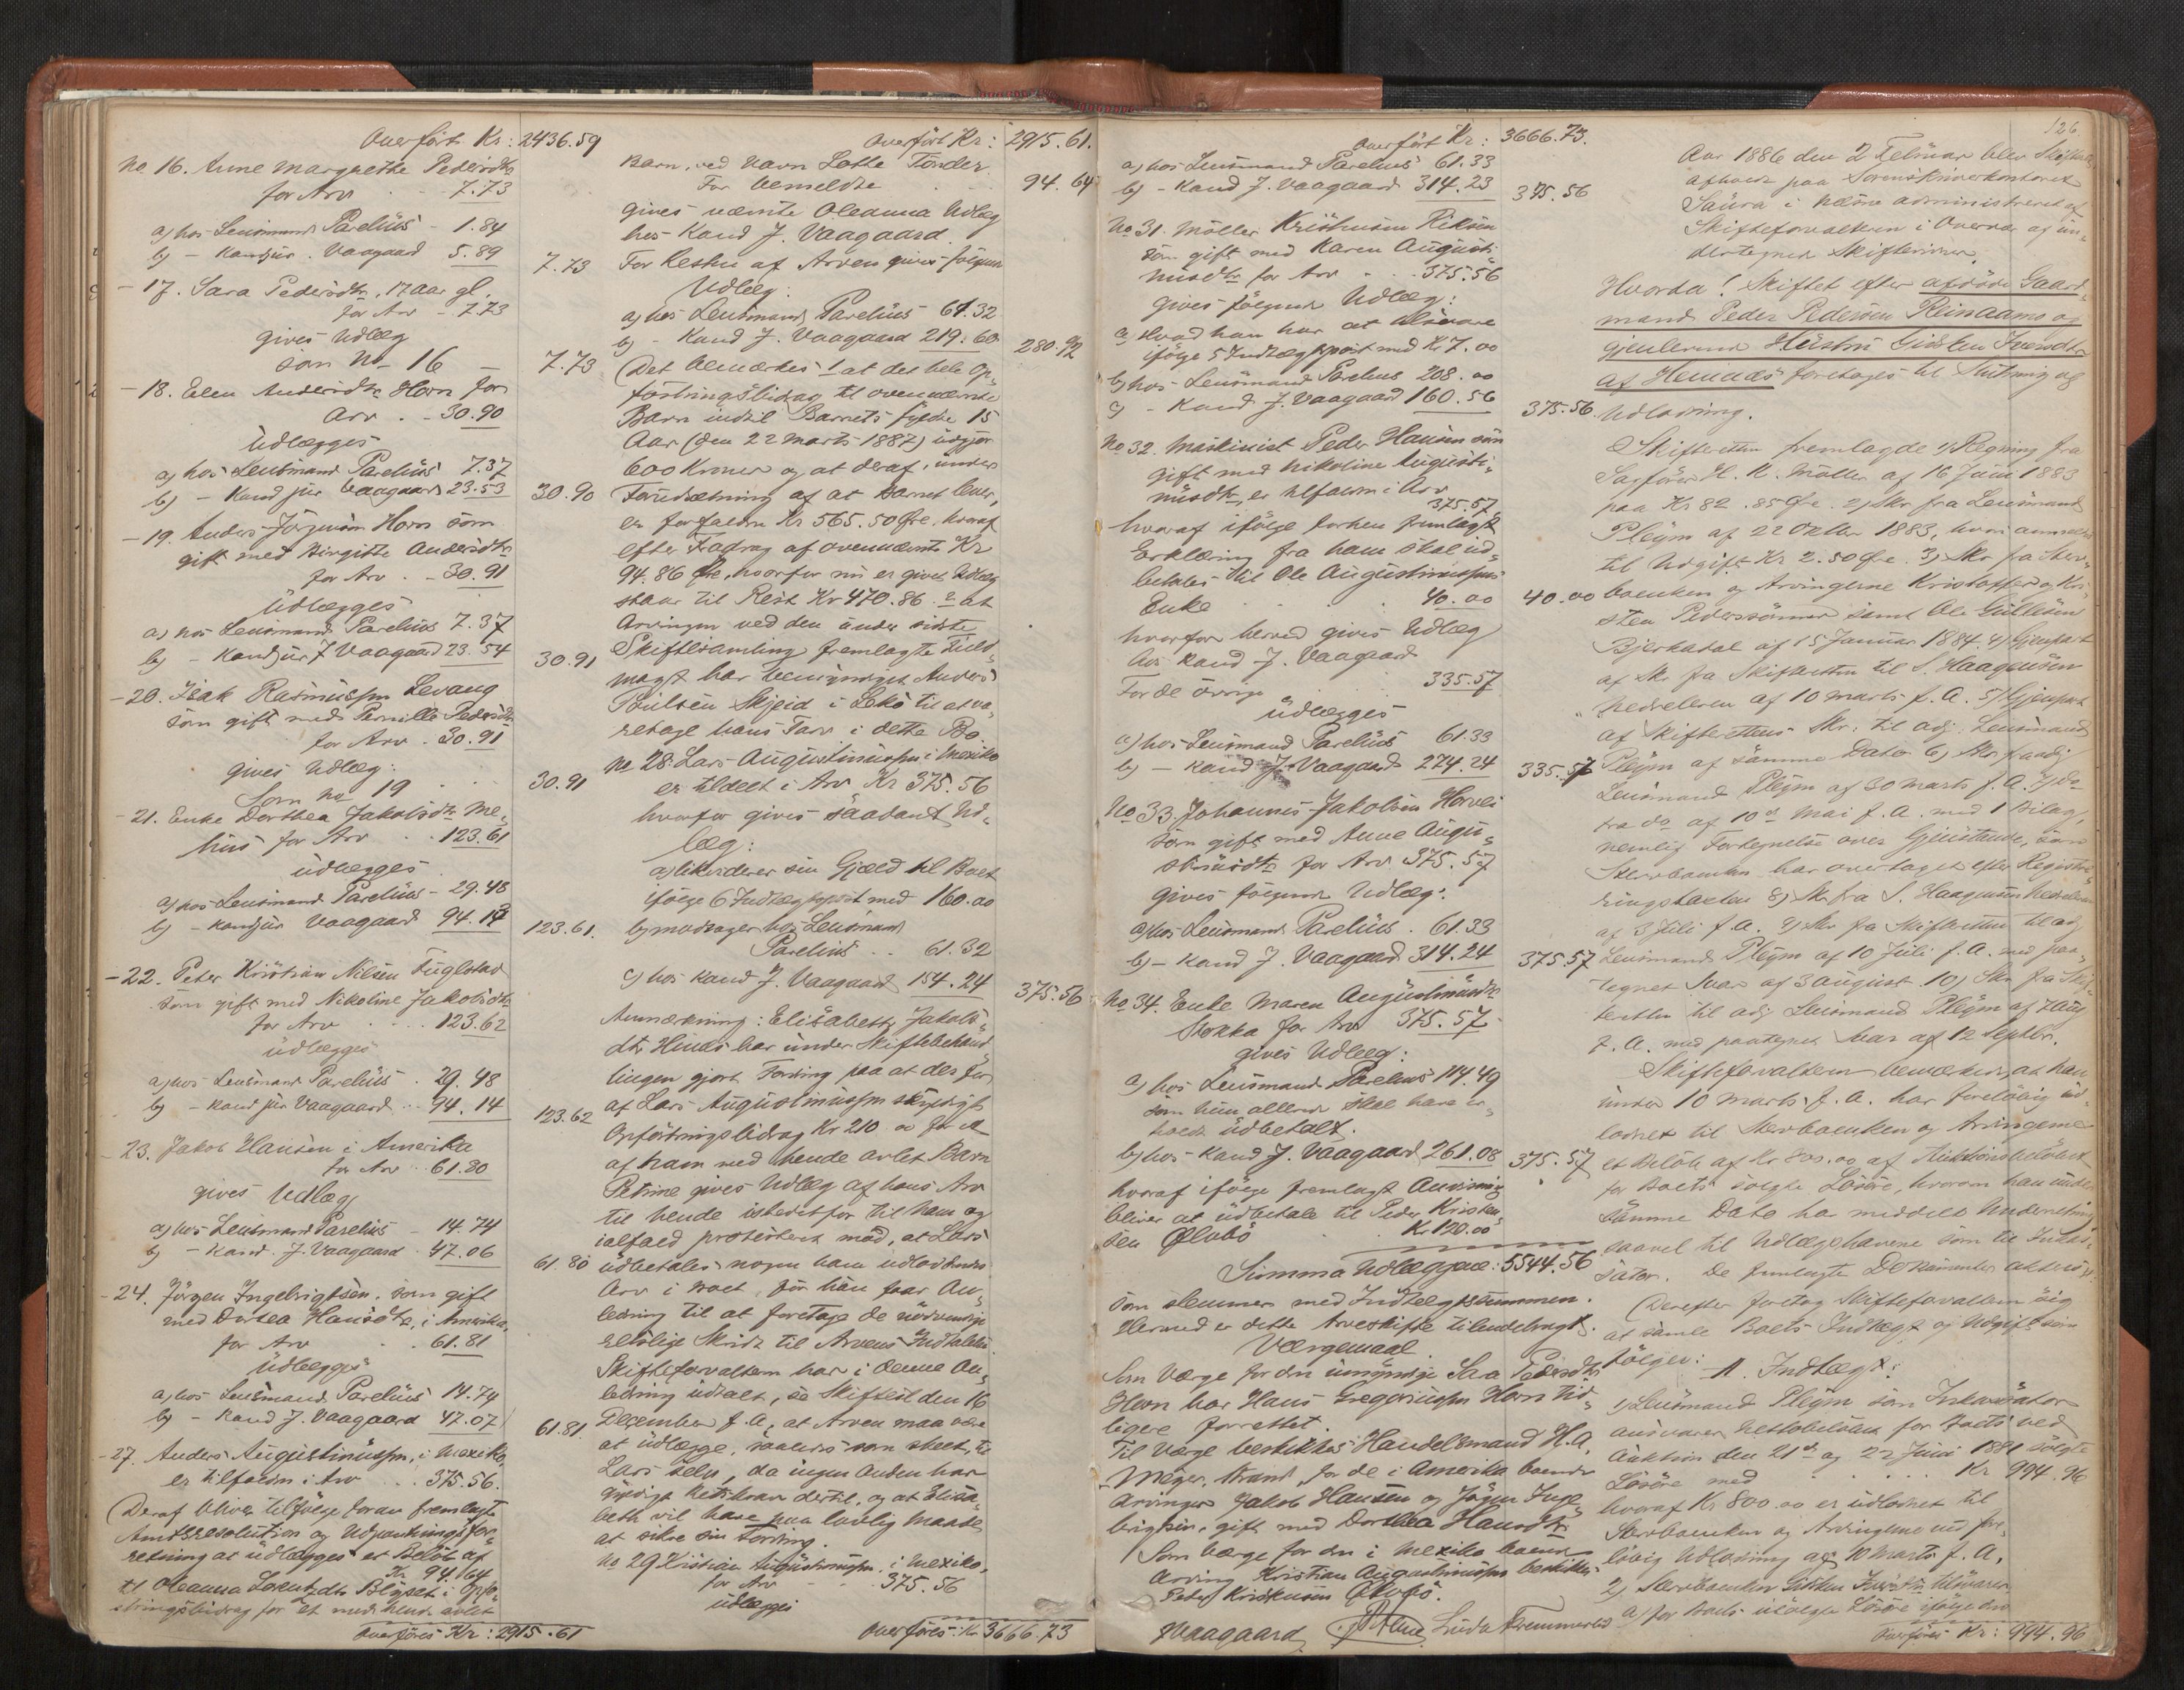 Overført Kr: 2436.59
No 16. Anne Margrethe Pedersdtr
for Arv . . 7.73
a) hos Lensmand Parelius - 1.84
b) - Kand jur. Vaagaard 5.89 7.73
- 17. Sara Pedersdtr, 17 Aar gl.
for Arv - 7.73
gives Udlæg
som No 16 — 7.73
- 18. Elen Andersdtr Horn for
Arv . - 30.90
Udlægges
a) hos Lensmand Parelius 7.37
b) - Kand jur Vaagaard 23.53 30.90
- 19. Anders Jørgensen Horn som
gift med Birgitte Andersdtr
for Arv . - 30.91
Udlægges
a) hos Lensmand Parelius 7.37
b) - Kand jur J Vaagaard 23.54 30.91
- 20. Isak Rasmussen Levang
som gift med Pernille Pedersdtr
for Arv . 30.91
gives Udlæg:
Som No 19 30.91
- 21. Enke Dorthea Jakobsdtr Me-
hus for Arv . . 123.61
udlægges
a) hos Lensmand Parelius - 29.48
b) - Kand jur Vaagaard 94.13 123.61.
- 22. Peter Kristian Nilsen Fuglstad
som gift med Nikoline Jakobsdtr
for Arv . . . 123.62
udlægges
a) hos Lensmand Parelius . 29.48
b) - Kand jur Vaagaard . . 94.14 123.62
- 23. Jakob Hansen i Amerika
for Arv . . 61.80
gives Udlæg
a) hos Lensmand Parelius - 14.74
b) - Kand. J. Vaagaard . 47.06 61.80
- 24. Jörgen Ingebrigtsen, som gift
med Dortea Hansdtr, i Amerika,
for Arv . . 61.81
Udlægges
a) hos Lensmand Parelius 14.74
b) - Kand J. Vaagaard 47.07 61.81
- 27. Anders Augustinussen, i Mexiko,
er tilfalden i Arv . . 375.56.
Deraf bliver tilfølge foran fremlagte
Amtsresolution og Udpantningsfor-
retning at udlægges et Beløb af
Kr 94.64
til Oleanna Lorentzdtr Blysat i Opfo-
stringsbidrag for et med hende avlet
Overføres Kr: 2915.61
Overført Kr: 2915.61.
Barn, ved Navn Lotte Tønder
For bemeldte . . 94.64
gives nævnte Oleanna Udlæg
hos Kand J. Vaagaard.
For Resten af Arven gives følgende
Udlæg:
a) hos Lensmand Parelius - 61.32
b) - Kand J. Vaagaard 219.60 280.92
Det bemærkes 1 at det hele Op-
fostringsbidrag til ovennævnte
Barn indtil Barnets fyldte 15
Aar (den 22 Marts 1887) udgjør
600 Kroner og at deraf, under
Forudsætning af at Barnet lever,
er forfalden Kr 565.50 Øre, hvoraf
efter Fradrag af ovennævnte Kr
94.86 Øre, hvorfor nu er givet Udlæg
staar til Rest Kr 470.86. 2 at
Arvingen ved den under sidste
Skiftesamling fremlagte Fuld-
magt har bemyndiget Anders
Poulsen Skjeid i Lekø til at va-
retage hans Tarv i dette Bo.
No 28. Lars Augustinussen i Mexiko
er tildelt i Arv Kr 375.56
hvorfor gives saadant Ud-
læg:
a) likviderer sin Gjæld til Boet
ifølge 6 Indtægtspost med 160.00
b) modtager hos Lensmand
Parelius . . 61.32
c) hos Kand J. Vaagaard 154.24 375.56
Anmærkning: Elisabeth Jakobs-
dtr Hindes har under Skiftebehand-
lingen gjort Fordring paa at der for
af Lars Augustinussen skyldigt
Opfostringsbidrag Kr 210.00 for et
af ham med hende avlet Barn
Petrine gives Udlæg af hans Arv
til hende istedetfor til ham og
ialfald protesteret mod, at Lars
udbetales nogen ham udloddende
Arv i Boet, før hun faar An-
ledning til at foretage de nødvendige
retslige Skridt til Arvens Indtalelse.
Skifteforvalteren har i denne An-
ledning udtalt, se Skiftet den 16
December f. A., at Arven maa være
at udlægge, saaledes som skeet, til
Lars selv, da ingen Anden har
gyldigt Retskrav dertil, og at Elisa-
beth vil have paa lovlig Maade
at sikre sin Fordring.
No 29. Kristian Augustinussen, i Mexiko,
for Arv . . 375.56
udlægges
Overføres: Kr 3666.73
Overført Kr: 3666.73.
a) hos Lensmand Parelius 61.33
b) - Kand J. Vaagaard 314.23 375.56
No 31. Møller Kristensen Riksen
som gift med Karen Augusti-
nusdtr for Arv . . 375.56
gives følgende Udlæg:
a) Hvad han har at tilsvare
ifølge 5 Indtægtspost med Kr 7.00
b) hos Lensmand Parelius 208.00
c) - Kand J. Vaagaard 160.56 375.56
No 32. Maskinist Peder Hansen som
gift med Nikoline Augusti-
nusdtr, er tilfalden i Arv
375.57
hvoraf ifølge forhen fremlagt
Erklæring fra ham skal ud-
betales til Ole Augustinussens
Enke . . 40.00 40.00
hvorfor herved gives Udlæg
hos Kand J. Vaagaard
For de øvrige . . 335.57
udlægges
a) hos Lensmand Parelius 61.33
b) - Kand J. Vaagaard 274.24 335.57
No 33. Johannes Jakobsen Horvei
som gift med Anne Augu-
stinusdtr for Arv 375.57
gives følgende Udlæg:
a) hos Lensmand Parelius . 61.33
b) - Kand J. Vaagaard 314.24 375.57
No 34. Enke Maren Augustinusdtr
Stokka for Arv 375.57
gives Udlæg:
a) hos Lensmand Parelius 114.49
som hun allerede skal have er-
holdt udbetalt.
b) hos Kand J. Vaagaard 261.08 375.57
hvoraf ifølge fremlagt Anvisning
bliver at udbetale til Peder Kristen-
sen Ølvbø . . Kr 120.00
Summa Udlæggene: 5544.56
som stemmer med Indtægtssummen.
Hermed er dette Arveskifte tilendebragt.
Værgemaal.
Som Værge for den umyndige Sara Pedersdtr
Horn har Hans Gregoriussen Horn tid-
ligere forrettet.
Til Værge beskikkes Handelsmand H. A.
Meyer, Strand, for de i Amerika boende
Arvinger Jakob Hansen og Jørgen Inge-
brigtsen, gift med Dorthea Hansdtr
Som Værge for den i Mexiko boende
Arving Kristian Augustinussen beskikkes
Peder Kristensen Ølvbø.
Vaagaard
126.
Aar 1886 den 2 Februar blev Skifteret
afholdt paa Sorenskriverkontoret
Saura i Nesne administreret af
Skifteforvalteren i Overvær af un-
dertegnede Skifteskriver.
Hvorda! Skiftet efter afdøde Gaard-
mand Peder Pedersen Reinaamo og
gjenlevende Hustru Gidsken Iversdtr
af Hemnæs foretages til Slutning og
Udlodning.
Skifteretten fremlagde 1) Regning fra
Sagfører H. K. Møller af 16 Juni 1883
paa Kr 82.85 Øre. 2) Skr fra Lensmand
Pleym af 22 Oktbr 1883, hvori anmeldes
til Udgift Kr 2.50 Øre. 3) Skr fra Sterv-
boenken og Arvingerne Kristoffer og Kri-
sten Pedersønner samt Ole Gulliksen
Bjerkadal af 15 Januar 1884. 4) Gjenpart
af Skr fra Skifteretten til S. Haagensen
Hedvelleren af 10 Marts f. A. 5) Gjenpart
af Skifterettens Skr. til adj. Lensmand
Pleym af samme Dato 6) Skr fra adj
Lensmand Pleym af 30 Marts f. A. 7) do
fra do af 10de Mai f. A. med 1 Bilag,
nemlig Fortegnelse over Gjenstande, som
Stervboenken har overtaget efter Registre-
ringstaxten 8) Skr fra S. Haagensen
af 3 Juli f. A. 9) Skr fra Skifteretten til adj
Lensmand Pleym af 10 Juli f. A. med paa-
tegnet Svar af 3 August 10) Skr fra Skif-
teretten til adj Lensmand Pleym af 7 Aug
f. A. med paategnet Svar af 12 Septbr.
Skifteforvalteren bemærkede, at han
under 10 Marts f. A. har foreløbig ud-
loddet til Stervboenken og Arvingerne
et Beløb af Kr 800.00 af Auktionsbeløbet
for Boets solgte Løsøre, hvorom han under
samme Dato har meddelt Underretning
saavel til Udlægshaverne som til Inkas-
sator. De fremlagte Dokumenter
Derefter foretog Skifteforvalteren sig
at samle Boets Indtægt og Udgift som
følger: A. Indtægt:
1) Lensmand Pleym som Inkassator
ansvarer Nettobeløbet for Boets ved
Auktion den 21de og 22 Juni 1881 solgte
Løsøre med . . . Kr 994.96
hvoraf Kr 800.00 er udloddet til
Stervboenken og Arvingerne ved fore-
løbig Udlodning af 10 Marts f. A.
2) Stervboenken Gidsken Iversdtr tilsvarer
a) for Boets usolgte Løsøre ifølge den
Overføres Kr: 994.96